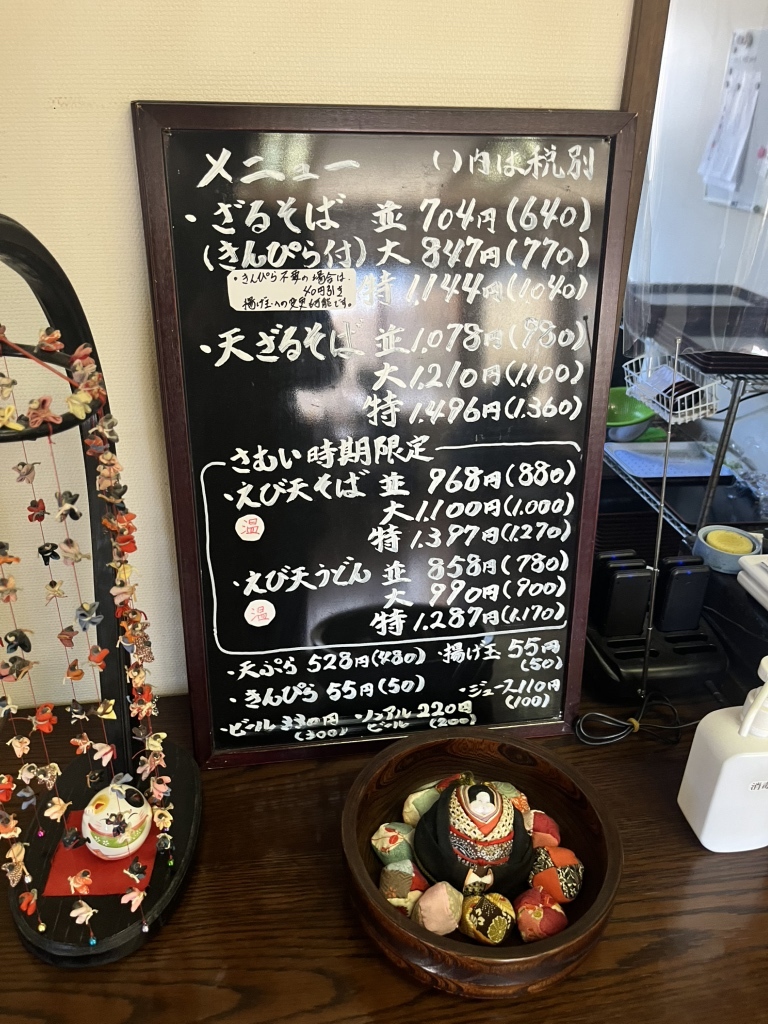 メニュー ( )内は税別
・ざるそば 並 704円(640)
(きんぴら付) 大 847円(770)
・きんぴら不要の場合は、
40円引き
揚げ玉への変更可能です。
特 1,144円(1,040)
・天ざるそば 並 1,078円(980)
大 1,210円(1,100)
特 1,496円(1,360)
さむい時期限定
・えび天そば 並 968円(880)
温
大 1,100円(1,000)
特 1,397円(1,270)
・えび天うどん 並 858円(780)
温
大 990円(900)
特 1,287円(1,170)
・天ぷら 528円(480) ・揚げ玉 55円
(50)
・きんぴら 55円(50) ・ジュース110円
(100)
・ビール 330円 ・ノンアル 220円
(300) ビール (200)